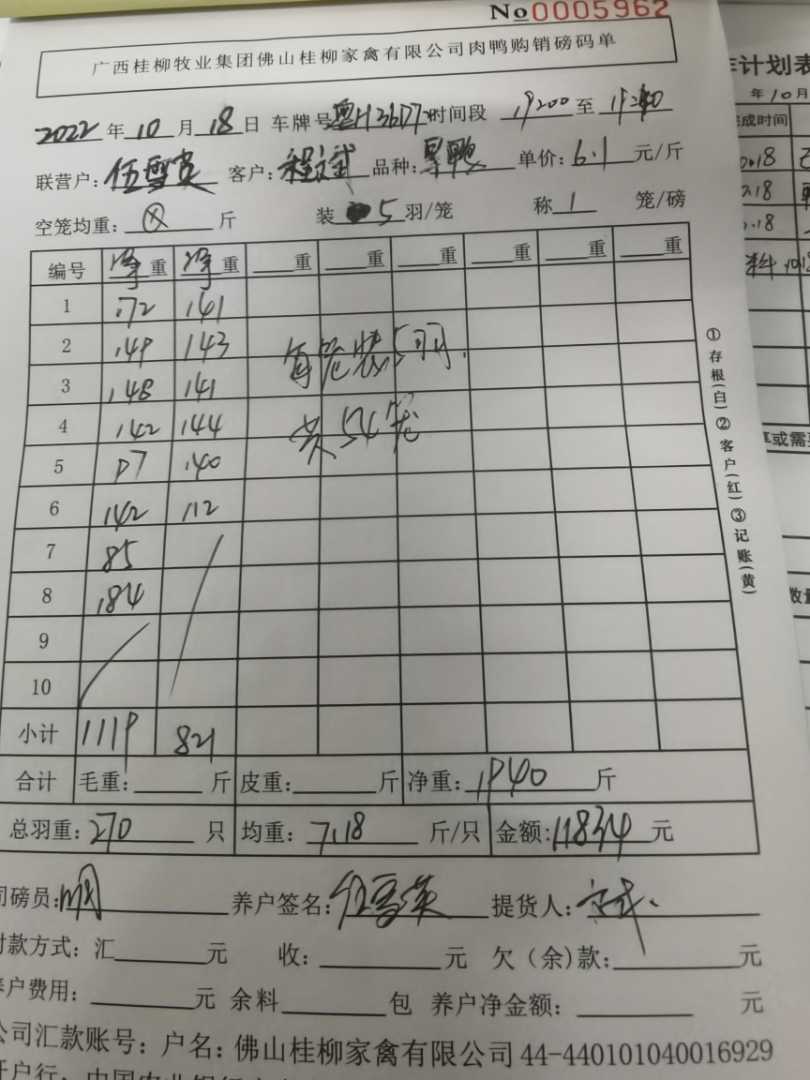 No0005962
广西桂柳牧业集团佛山桂柳家禽有限公司肉鸭购销磅码单
2022年10月18日 车牌号 时间段 19:00至19:40
联营户: 伍雪英 客户: 程文斌 品种: 单价: 6.1元/斤
空笼均重: ⊗斤 装5羽/笼 称1笼/磅
编号 净重 净重 重 重 重 重 重 重
1 172 141
2 149 143
3 148 141
4 142 144
5 97 140
6 142 112
7 85
8 184
9
10
每笼装5羽.
共54笼
小计 1119 821
合计 毛重: 斤 皮重: 斤 净重: 1940斤
总羽重: 270只 均重: 7.18斤/只 金额: 11834元
司磅员: 养户签名: 伍雪英 提货人: 文斌
付款方式: 汇 元 收: 元 欠(余)款: 元
养户费用: 元 余料 包 养户净金额: 元
公司汇款账号: 户名: 佛山桂柳家禽有限公司 44-440101040016929
开户行: 中国农业银行
①存根(白)②客户(红)③记账(黄)
计划表
年10月
成时间
0.18
.18
.18
或需
数量